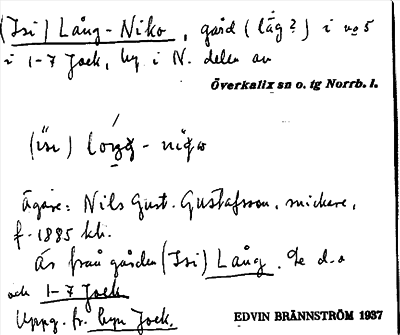 (Isi) Lång-Niko, gård (läg?) i no 5
i 1-7 Jock, by i N. delen av
Överkalix sn o. tg Norrb. l.
(isi)
Ägare: Nils Gust. Gustafsson, snickare,
f. 1885 kk.
Är från gården (Isi) Lång. Se d.o
och 1-7 Jock
Uppg. fr. byn Jock.
EDVIN BRÄNNSTRÖM 1937